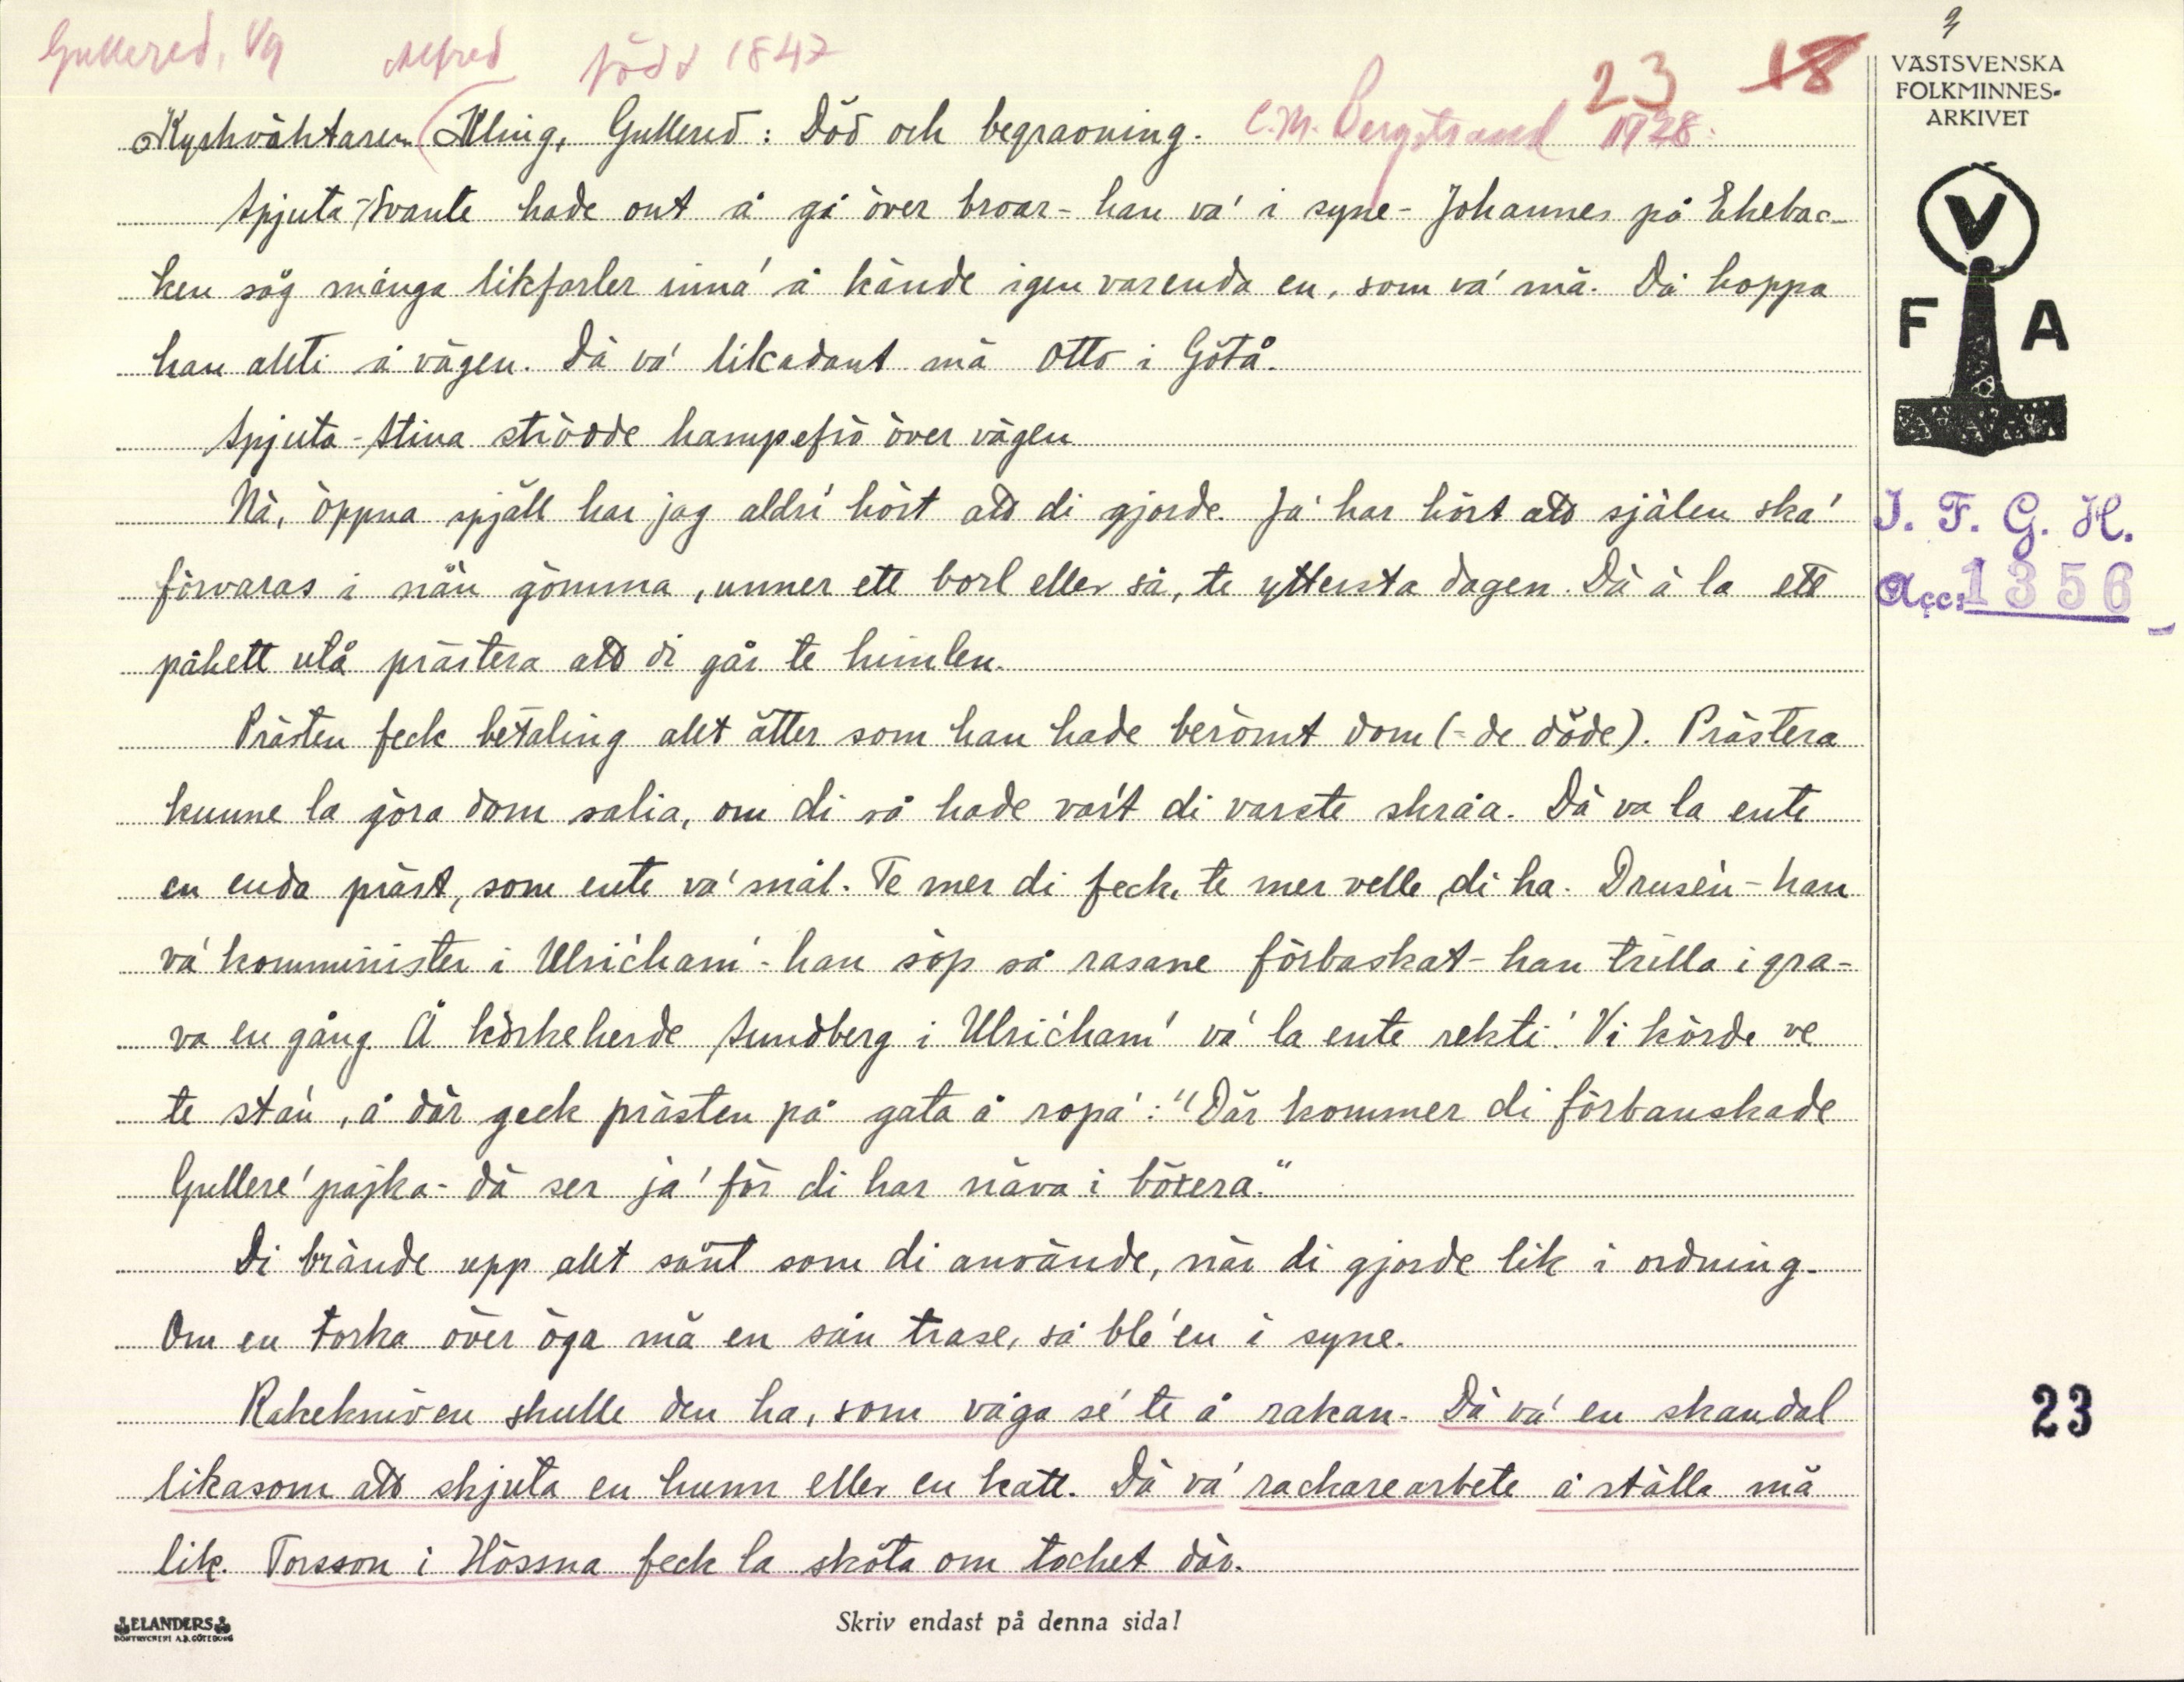 Gullered, Vg Alfred född 1847
23 18
3
VÄSTSVENSKA
FOLKMINNES-
ARKIVET
Kyrkväktaren Kling, Gullered: Död och begravning. C.M. Bergstrand 1928.
Spjuta-Svante hade ont å gå över broar- han va' i syne- Johannes på Ekebac-
ken såg många likfärler inna' å kände igen varenda en, som va' mä. Då hoppa
han allti å vägen. Dä va' likadant mä Otto i Götå.
Spjuta-Stinaströdde hampefrö över vägen
Nä, öppna spjäll har jag aldri' hört att di gjorde. Ja' har hört att själen ska'
förvaras i nån gömma, unner ett borl eller så, te yttersta dagen. Dä ä la ett
påhett utå prästera att di går te himlen.
Prästen feck betaling alet ätter som han hade berömt dom (= de döde). Prästera
kunne la göra dom salia, om di så hade vatt di varste skråa. Dä va la ente
en enda präst, som ente va' snål. Te mer di feck, te mer velle di ha. Drusén - han
va' komminister i Ulricham' - han söp så rasane förbaskat - han trilla i gra-
va en gång. Å körkeherde Sundberg i Ulricham' va' la ente rekti'. Vi körde ve
te stan, å där geck prästen på gata å ropa': "Där kommer di förbanskade
Gullere'pajka - dä ser ja' för di har näva i böxera."
Di brände upp alet sånt som di använde, när di gjorde lik i ordning.
Om en torka över öga mä en sån trase, så ble'en i syne.
Rakekniven skulle den ha, som våga se' te å rakan. Dä va' en skandal
likasom att skjuta en hunn eller en katt. Dä va' rackarearbete å ställa mä
lik. Torsson i Hössna feck la sköta om tocket där.
V
F A
I. F. G. H.
Acc: 1356
23
ELANDERS
BOKTRYCKERI A.B. GÖTEBORG
Skriv endast på denna sida!